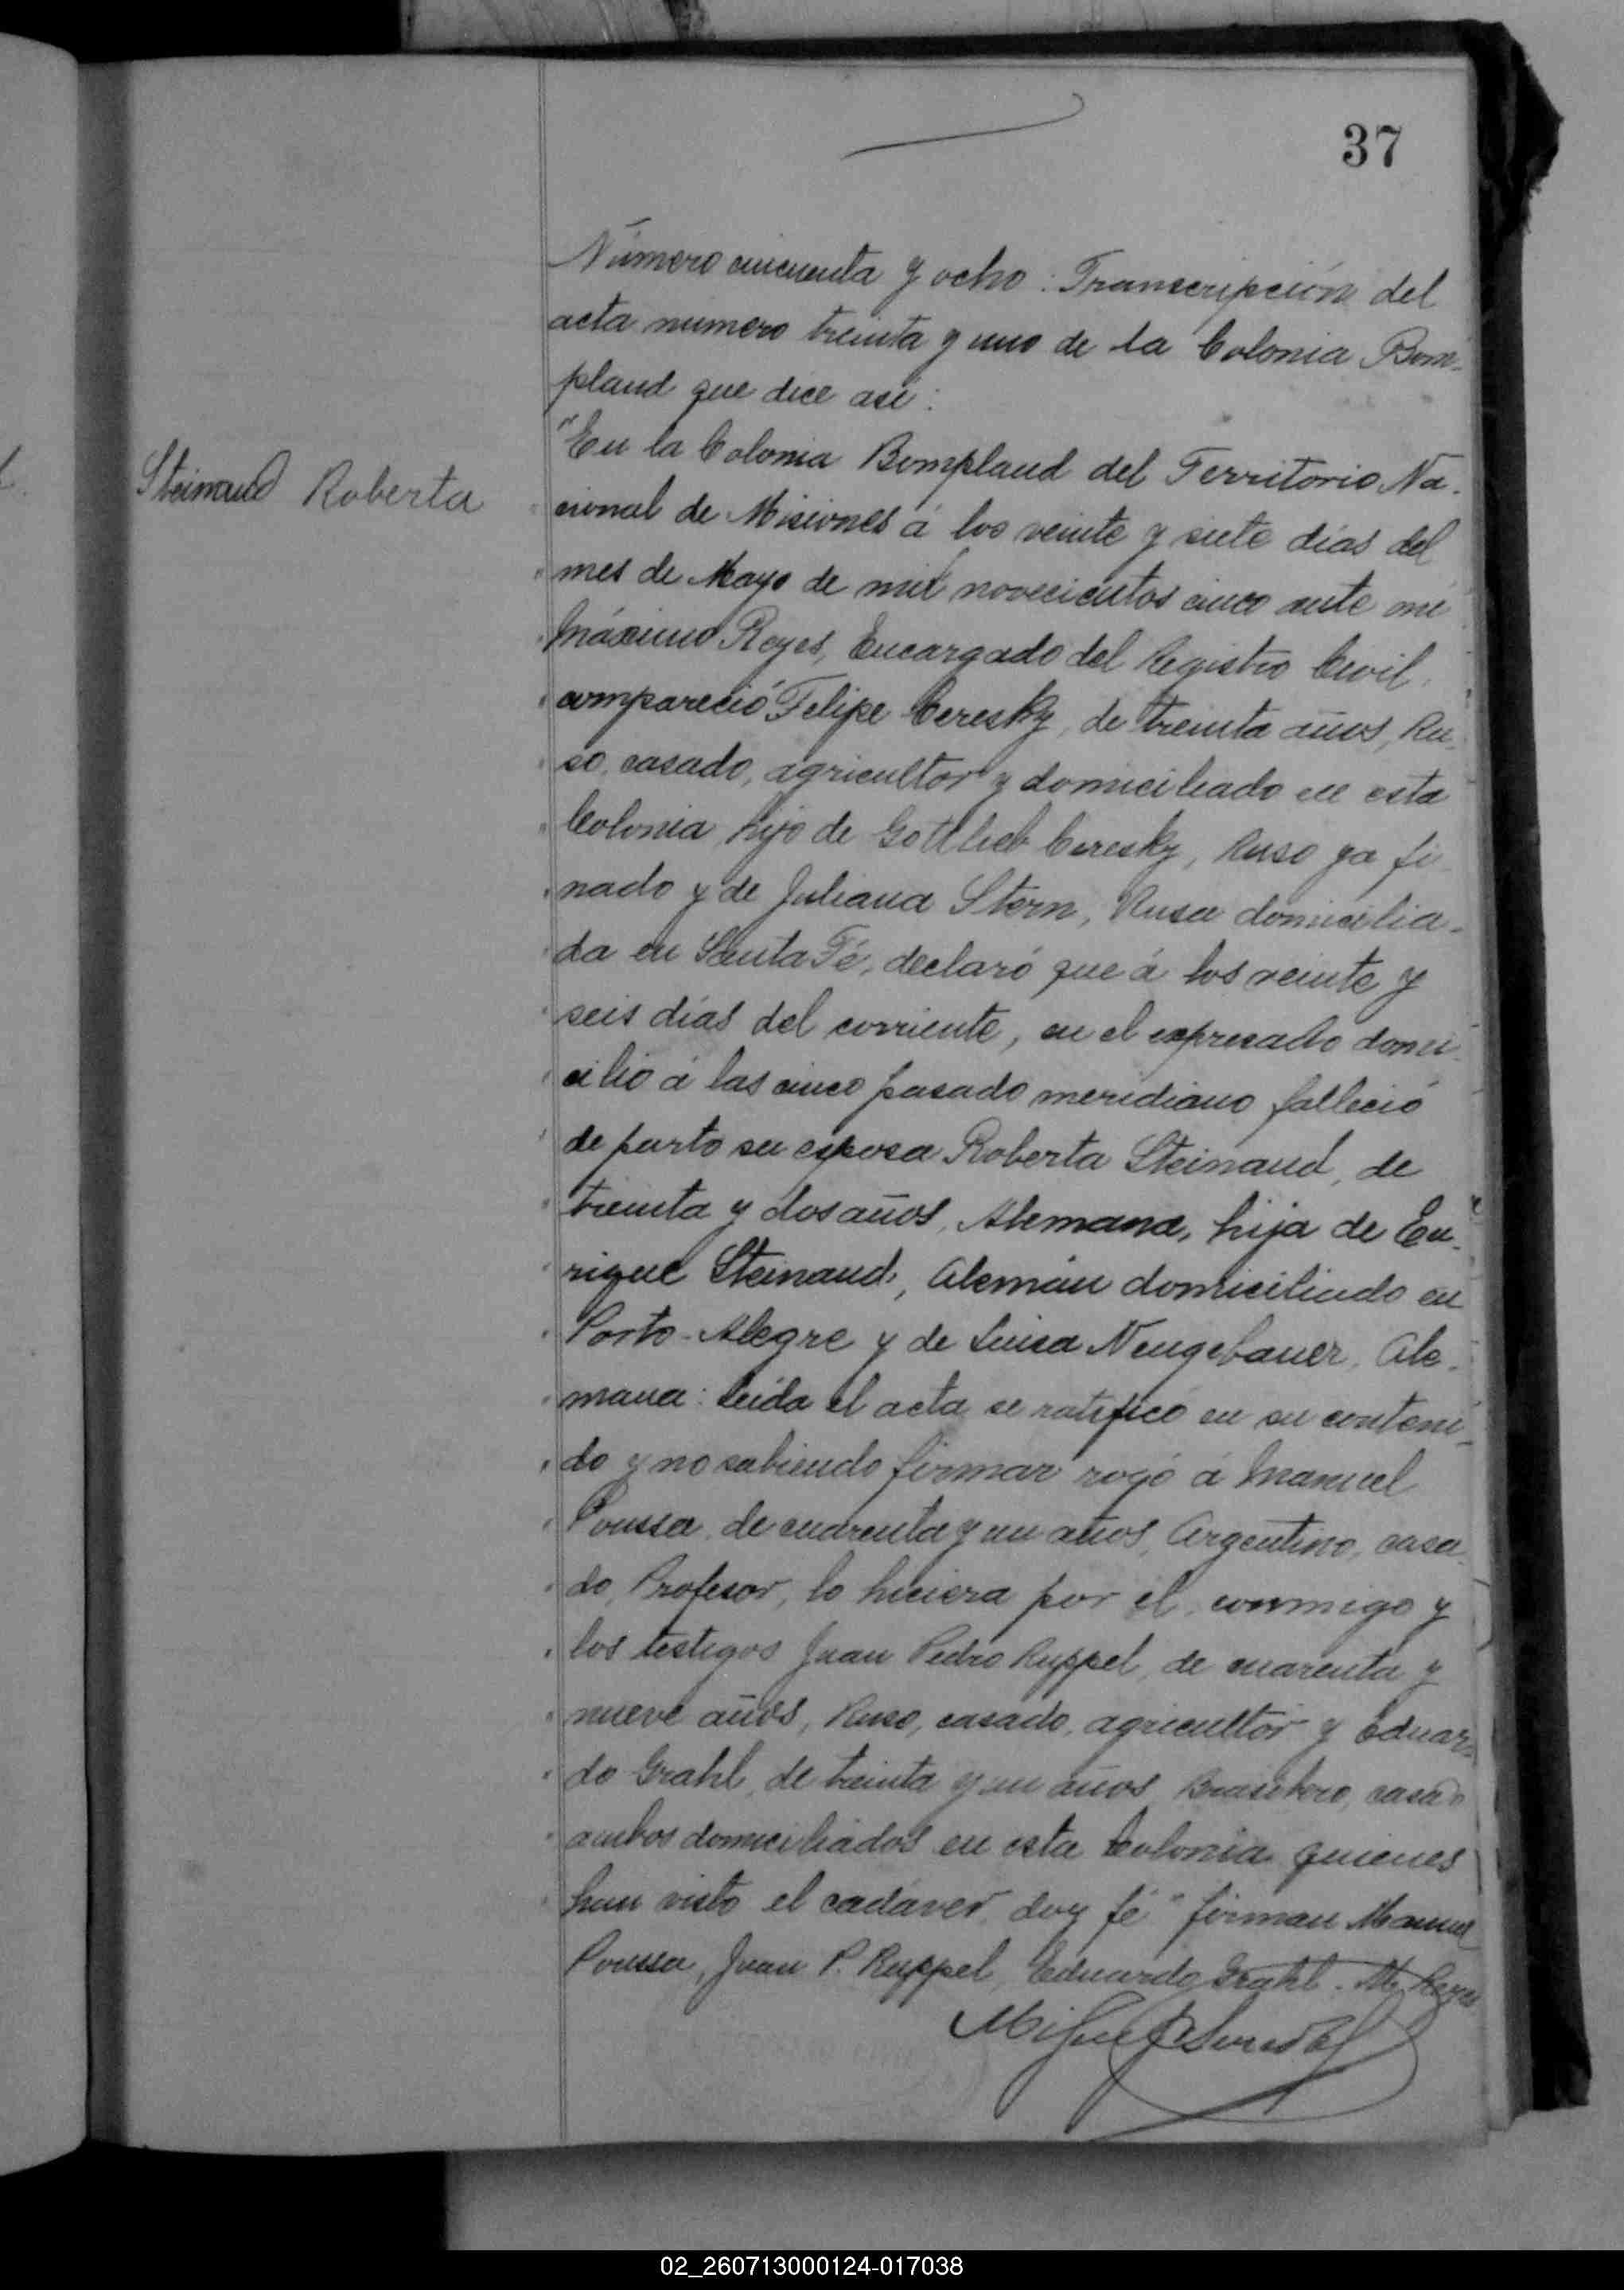 37
Número cincuenta y ocho: Transcripción del
acta numero treinta y uno de la Colonia Bom-
pland que dice así:
Steinaud Roberta
"En la Colonia Bompland del Territorio Na-
cional de Misiones á los veinte y siete días del
mes de Mayo de mil novecientos cinco ante mi
Máximo Reyes, Encargado del Registro Civil,
compareció Felipe Ceresky, de treinta años, Ru-
so, casado, agricultor y domiciliado en esta
Colonia hijo de Gottlieb Ceresky, Ruso ya fi-
nado y de Juliana Stern, Rusa domicilia-
da en Santa Fé, declaró que á los veinte y
seis días del corriente, en el expresado domi-
cilio á las cinco pasado meridiano falleció
de parto su esposa Roberta Steinaud, de
treinta y dos años, Alemana, hija de En-
rique Steinaud, Alemán domiciliado en
Porto-Alegre y de Luisa Neugebauer, Ale-
mana: Leida el acta se ratificó en su conteni-
do y no sabiendo firmar rogó á Manuel
Poussa, de cuarenta y un años, Argentino, casa-
do, Profesor, lo hiciera por él, conmigo y
los testigos Juan Pedro Ruppel, de cuarenta y
nueve años, Ruso, casado, agricultor y Eduar-
do Grahl, de treinta y un años Brasilero, casado
ambos domiciliados en esta Colonia quienes
han visto el cadáver, doy fé" firman Manuel
Poussa, Juan P. Ruppel, Eduardo Grahl. M. Reyes
02_260713000124-017038